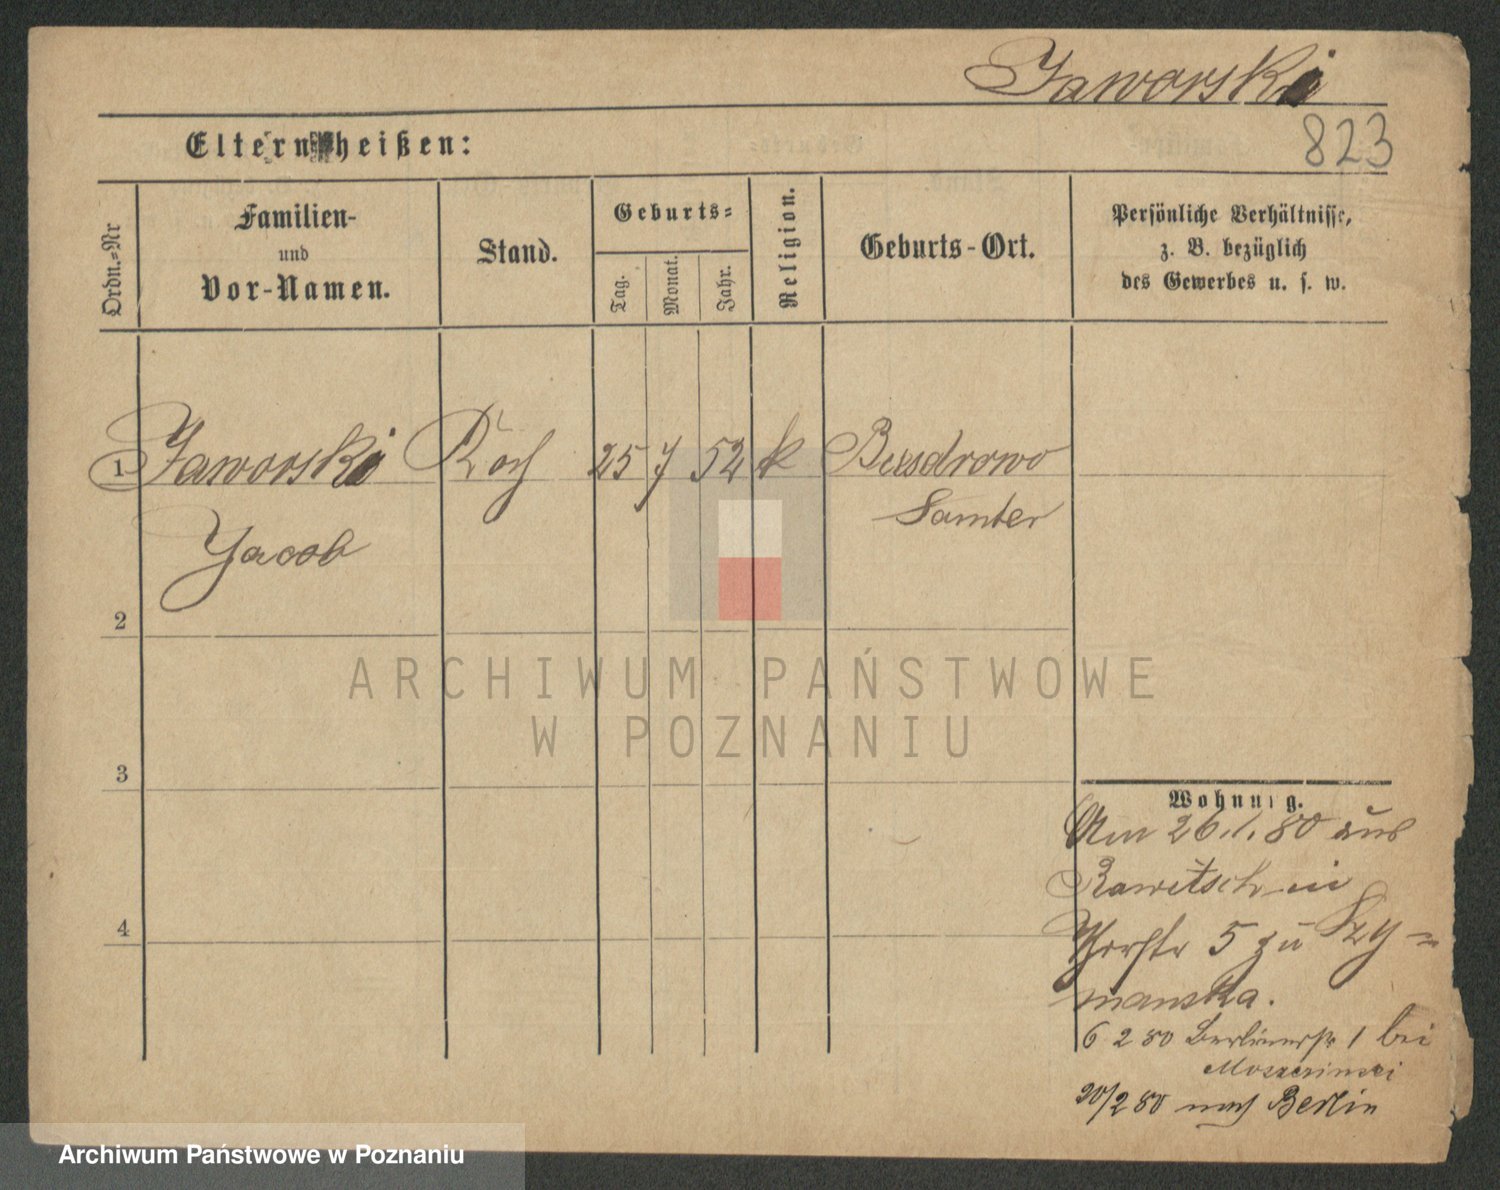 Jaworski
823
Eltern heißen:
Ordn.-Nr
Familien-
und
Vor-Namen.
Stand.
Geburts-
Tag.
Monat.
Jahr.
Religion.
Geburts-Ort.
Persönliche Verhältnisse,
z. B. bezüglich
des Gewerbes u. s. w.
1 Jaworski Koch 25 7 52 k
Samter
Jacob
2
3
4
ARCHIWUM PAŃSTWOWE
W POZNANIU
Wohnung.
Am 26.1.80 aus
Rawitsch in
5 zu Szy-
manska.
6 2 80 Berlinerstr 1 bei
20/2 80 nach Berlin
Archiwum Państwowe w Poznaniu